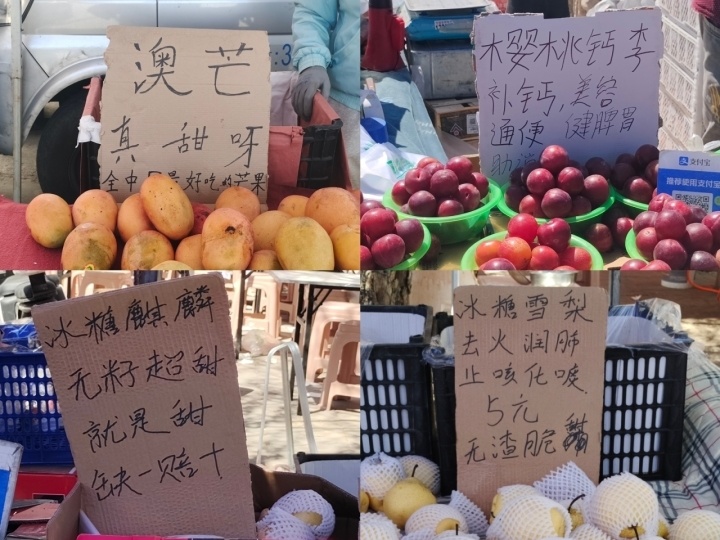 澳芒
真甜呀
全中国最好吃的芒果
木婴桃钙李
补钙,美容
通便 健脾胃
支付宝
推荐使用支付宝
冰糖麒麟
无籽超甜
就是甜
缺一赔十
冰糖雪梨
去火润肺
止咳化痰
5元
无渣脆甜